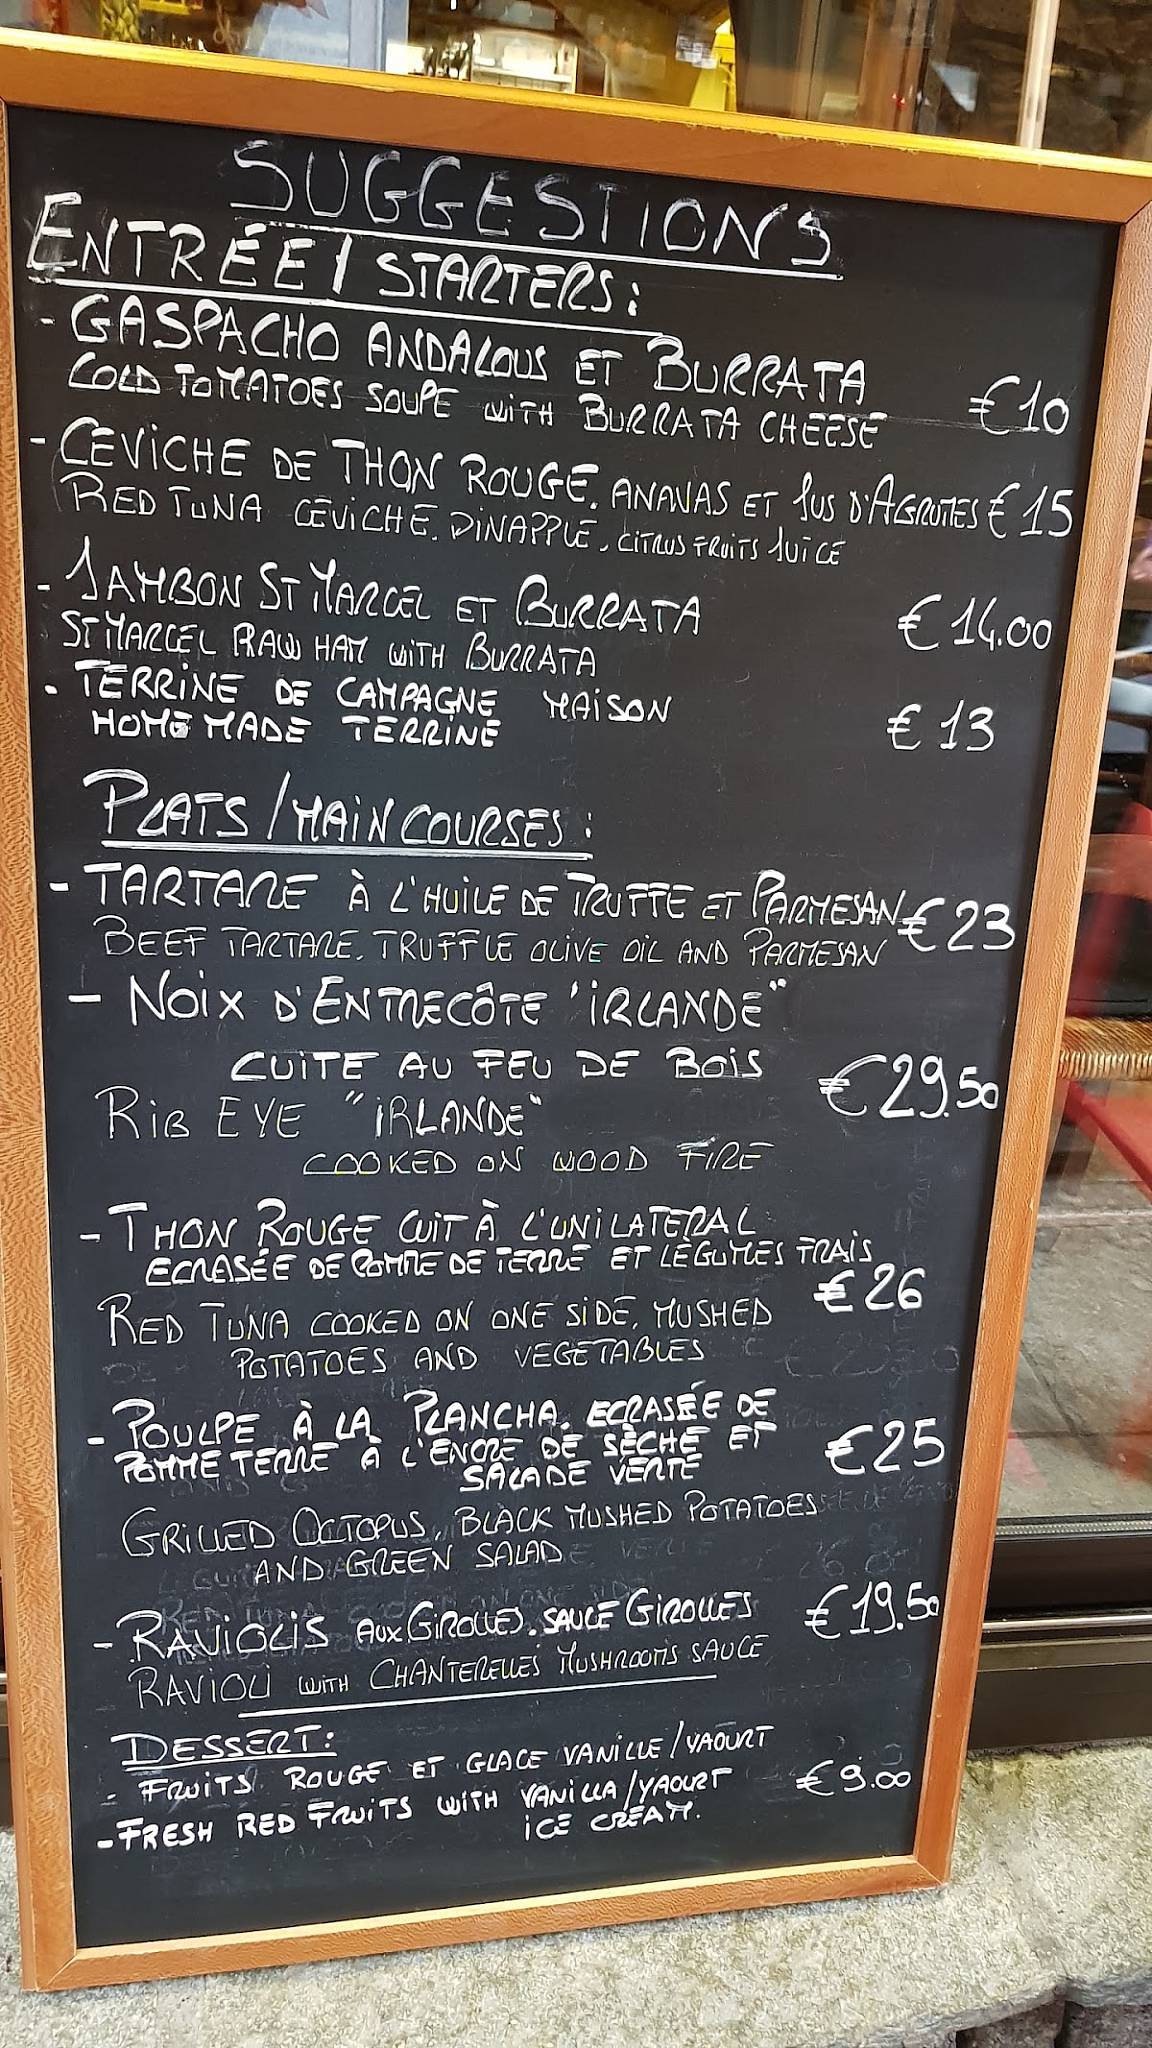 SUGGESTIONS
ENTRÉE / STARTERS:
- GASPACHO ANDALOUS ET BURRATA
COLD TOMATOES SOUPE WITH BURRATA CHEESE €10
- CEVICHE DE THON ROUGE. ANANAS ET JUS D'AGRUTES €15
RED TUNA CEVICHE. DINAPPLE, CITRUS FRUITS JUICE
- JAMBON ST MARCEL ET BURRATA €14.00
ST MARCEL RAW HAM WITH BURRATA
- TERRINE DE CAMPAGNE MAISON €13
HOME MADE TERRINE
PLATS / MAIN COURSES:
- TARTARE À L'HUILE DE TRUFFE ET PARMESAN €23
BEEF TARTARE. TRUFFLE OLIVE OIL AND PARMESAN
- NOIX D'ENTRECÔTE "IRLANDE"
CUITE AU FEU DE BOIS €29.50
RIB EYE "IRLANDE"
COOKED ON WOOD FIRE
- THON ROUGE CUIT À L'UNILATERAL
ECRASÉE DE POMME DE TERRE ET LÉGUMES FRAIS €26
RED TUNA COOKED ON ONE SIDE. MUSHED
POTATOES AND VEGETABLES
- POULPE À LA PLANCHA. ECRASÉE DE
POMME TERRE À L'ENCRE DE SÈCHE ET €25
SALADE VERTE
GRILLED OCTOPUS, BLACK MUSHED POTATOES
AND GREEN SALAD
- RAVIOLIS AUX GIROLLES. SAUCE GIROLLES €19.50
RAVIOLI WITH CHANTERELLES MUSHROOMS SAUCE
DESSERT:
- FRUITS ROUGE ET GLACE VANILLE/YAOURT €9.00
- FRESH RED FRUITS WITH VANILLA/YAOURT
ICE CREAM.